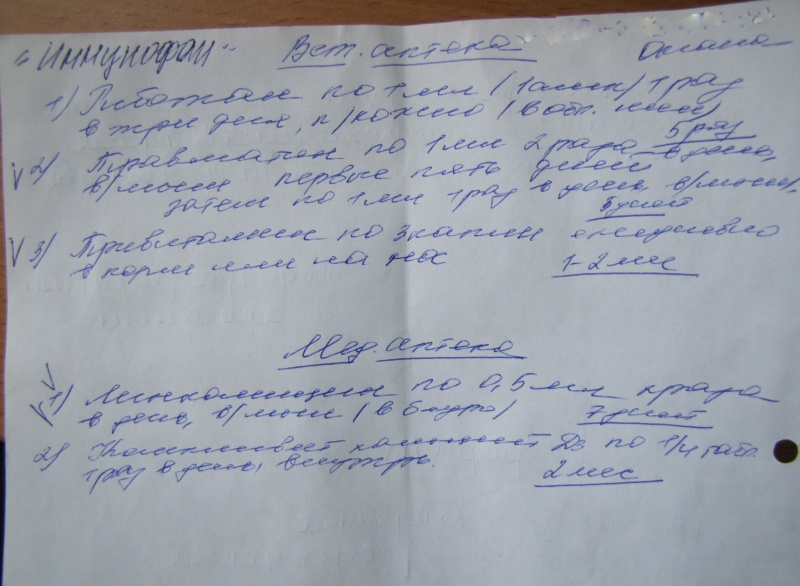 "Иммунофан" Вет. аптека Оксана
1) по 1 мл (1 амп) 1 раз
в три дня, п/кожно (в обл. шеи) 5 раз
2) Травматин по 1 мл 2 раза в день,
в/мыш первые пять дней
затем по 1 мл 1 раз в день в/мыш,
5 дней
3) Тривитамин по 3 капли ежедневно
в корм или на нос 1-2 мес
Мед. аптека
1) Линкомицин по 0,5 мл раза
в день, в/мыш (в бедро) 7 дней
2) Компливит кальций Д3 по 1/4 табл.
1 раз в день, внутрь. 2 мес